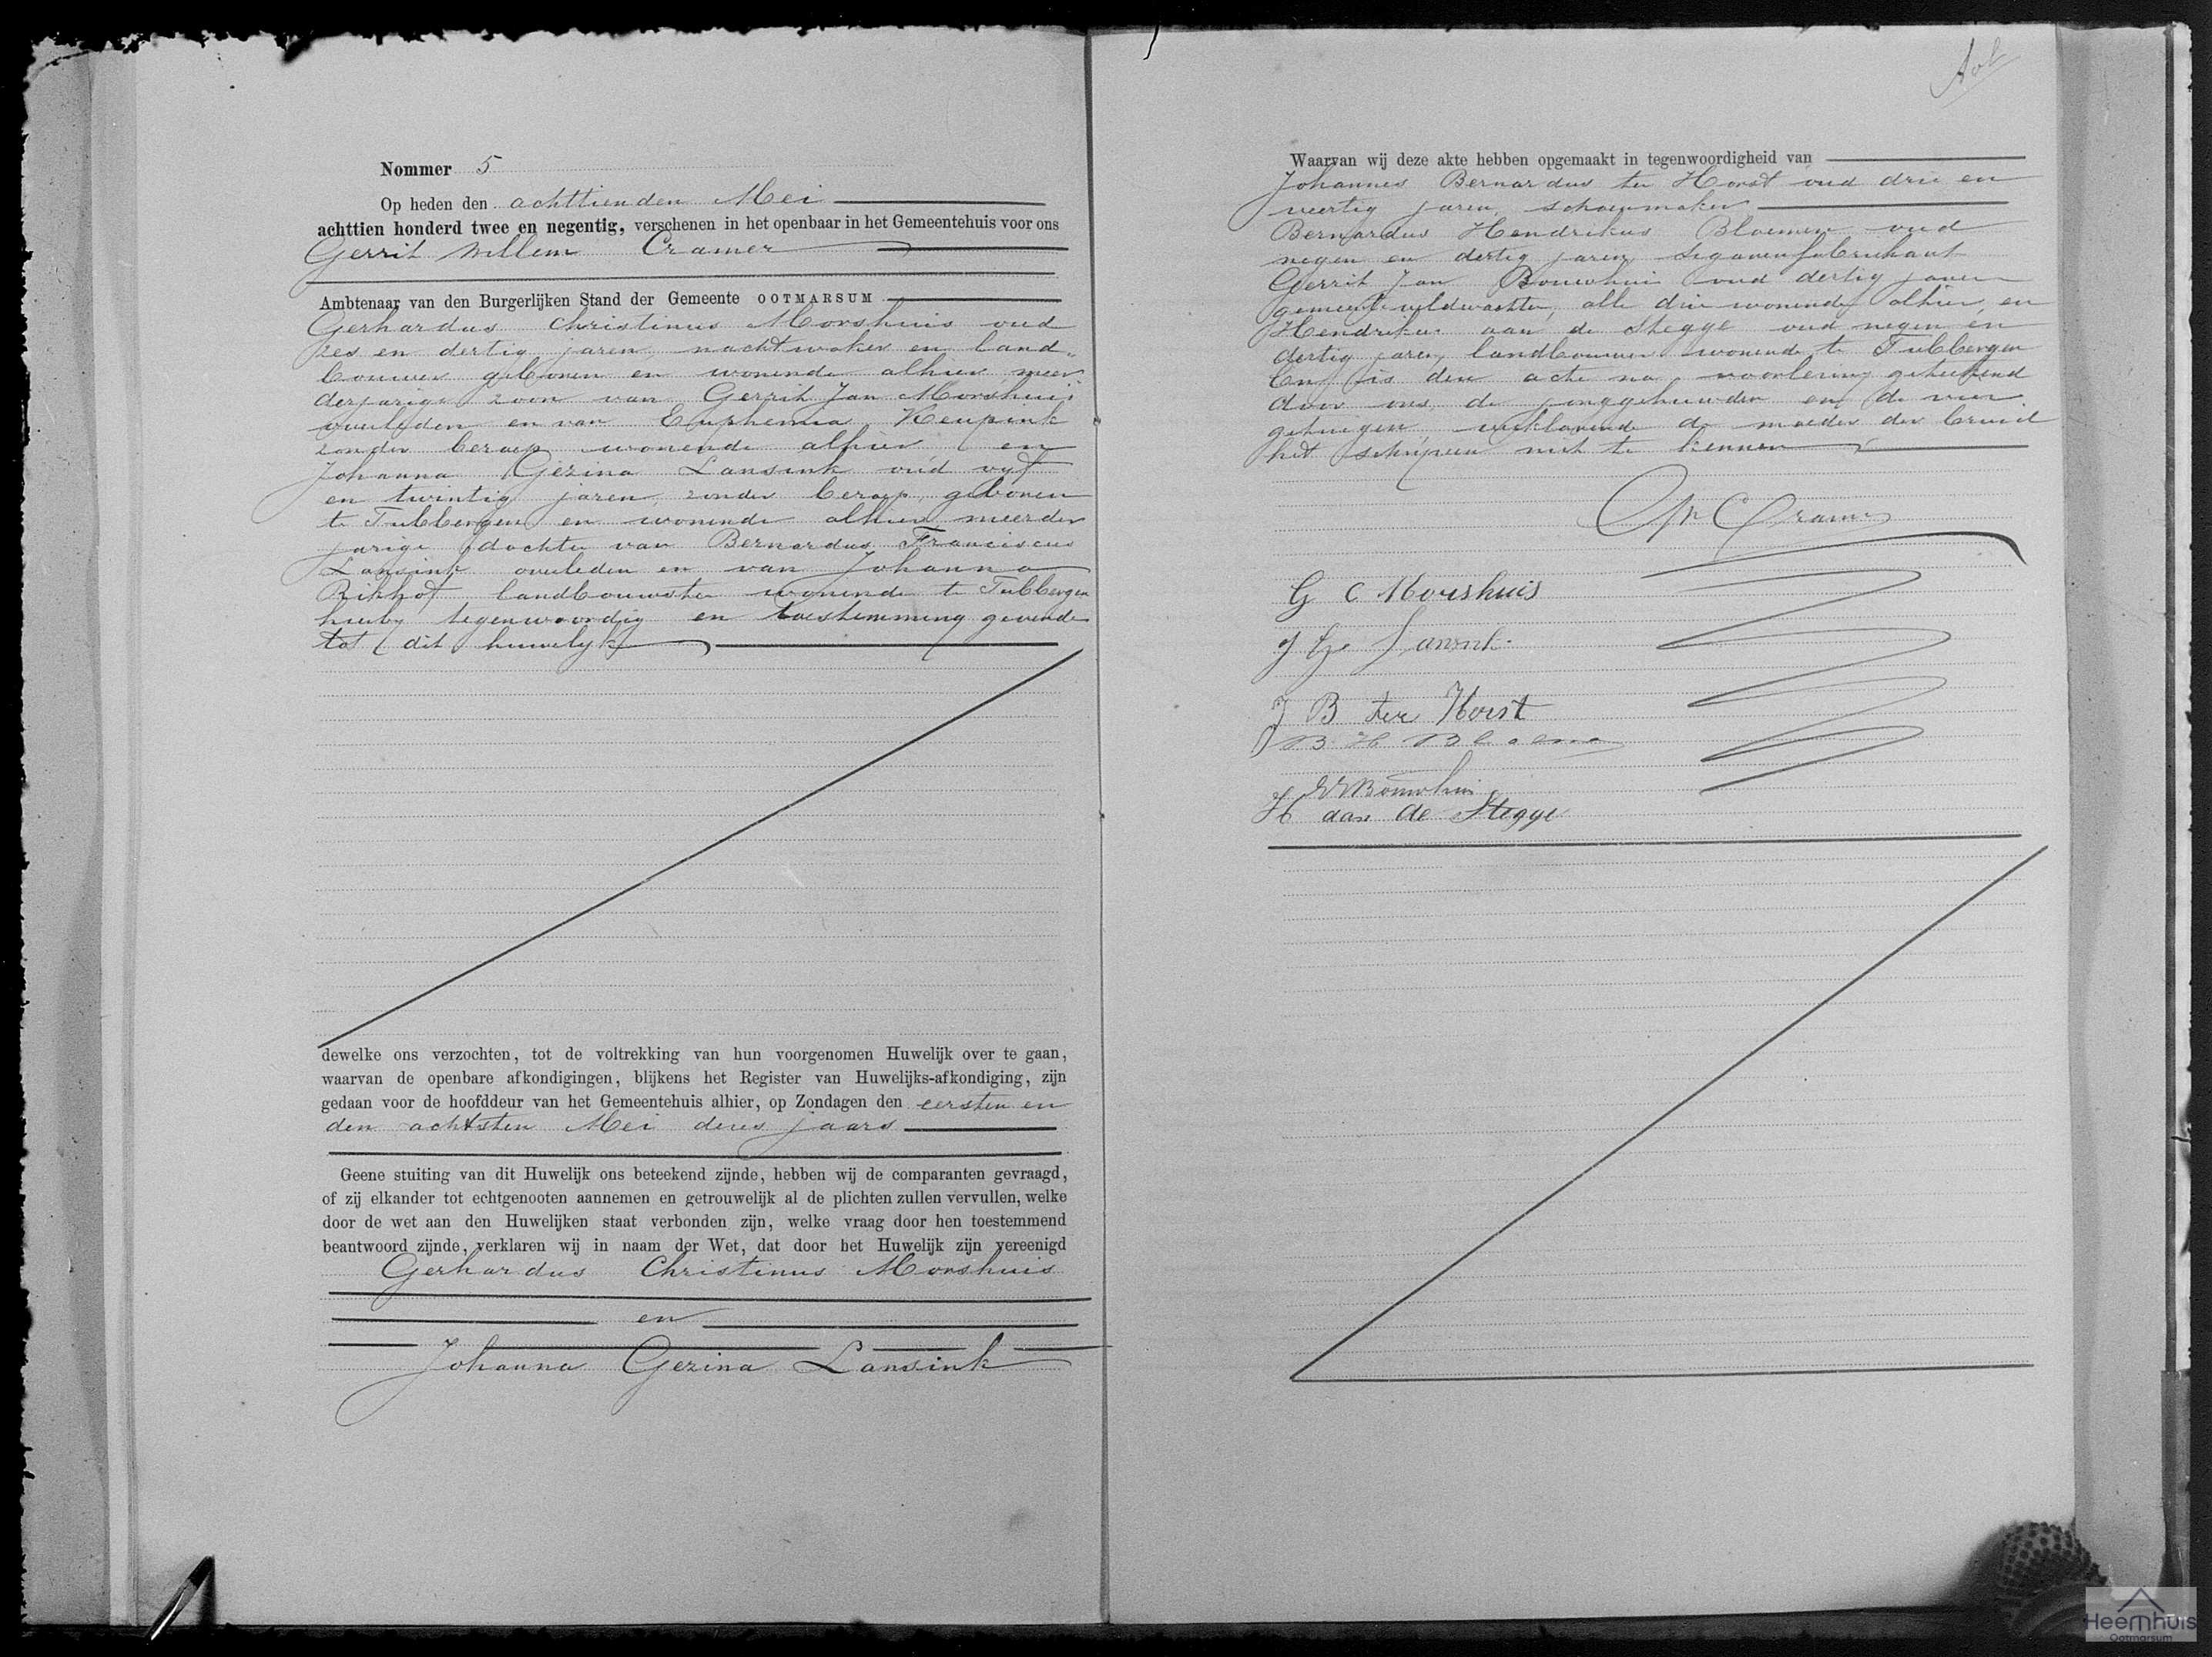 Nommer 5
Op heden den achttienden Mei
achttien honderd twee en negentig, verschenen in het openbaar in het Gemeentehuis voor ons
Gerrit Willem Cramer
Ambtenaar van den Burgerlijken Stand der Gemeente OOTMARSUM
Gerhardus Christinus Morshuis oud
zes en dertig jaren, nachtwaker en land„
bouwer geboren en wonende alhier meer
derjarige zoon van Gerrit Jan Morshuis
overleden en van Euphemia Keupink
zonder beroep wonende alhier en
Johanna Gezina Lansink oud vyf
en twintig jaren zonder beroep, geboren
te Tubbergen en wonende alhier meerder
jarige dochter van Bernardus Franciscus
Lansink overleden en van Johanna
Rikhof landbouwster wonende te Tubbergen
hierby tegenwoordig en toestemming gevende
tot dit huwelyk
dewelke ons verzochten, tot de voltrekking van hun voorgenomen Huwelijk over te gaan,
waarvan de openbare afkondigingen, blijkens het Register van Huwelijks-afkondiging, zijn
gedaan voor de hoofddeur van het Gemeentehuis alhier, op Zondagen den eersten en
den achtsten Mei dezes jaars
Geene stuiting van dit Huwelijk ons beteekend zijnde, hebben wij de comparanten gevraagd,
of zij elkander tot echtgenooten aannemen en getrouwelijk al de plichten zullen vervullen, welke
door de wet aan den Huwelijken staat verbonden zijn, welke vraag door hen toestemmend
beantwoord zijnde, verklaren wij in naam der Wet, dat door het Huwelijk zijn vereenigd
Gerhardus Christinus Morshuis
en
Johanna Gezina Lansink
Waarvan wij deze akte hebben opgemaakt in tegenwoordigheid van
Johannes Bernardus ter Horst oud drie en
veertig jaren, schoenmaker
Bernardus Hendrikus Bloemen oud
negen en dertig jaren, sigarenfabriekant
Gerrit Jan Bouwhuis oud dertig jaren
gemeente veldwachter, alle drie wonende alhier en
Hendrikus aan de Stegge oud negen en
dertig jaren, landbouwer wonende te Tubbergen
En is deze acte na voorlezing geteekend
door ons, de jonggehuwden en de vier
getuigen verklarende de moeder der bruid
het schrijven niet te kennen
Cramer
G C Morshuis
J G Lansink
J B ter Horst
B H Bloemen
Bouwhuis
H aan de Stegge
Heemhuis
Ootmarsum